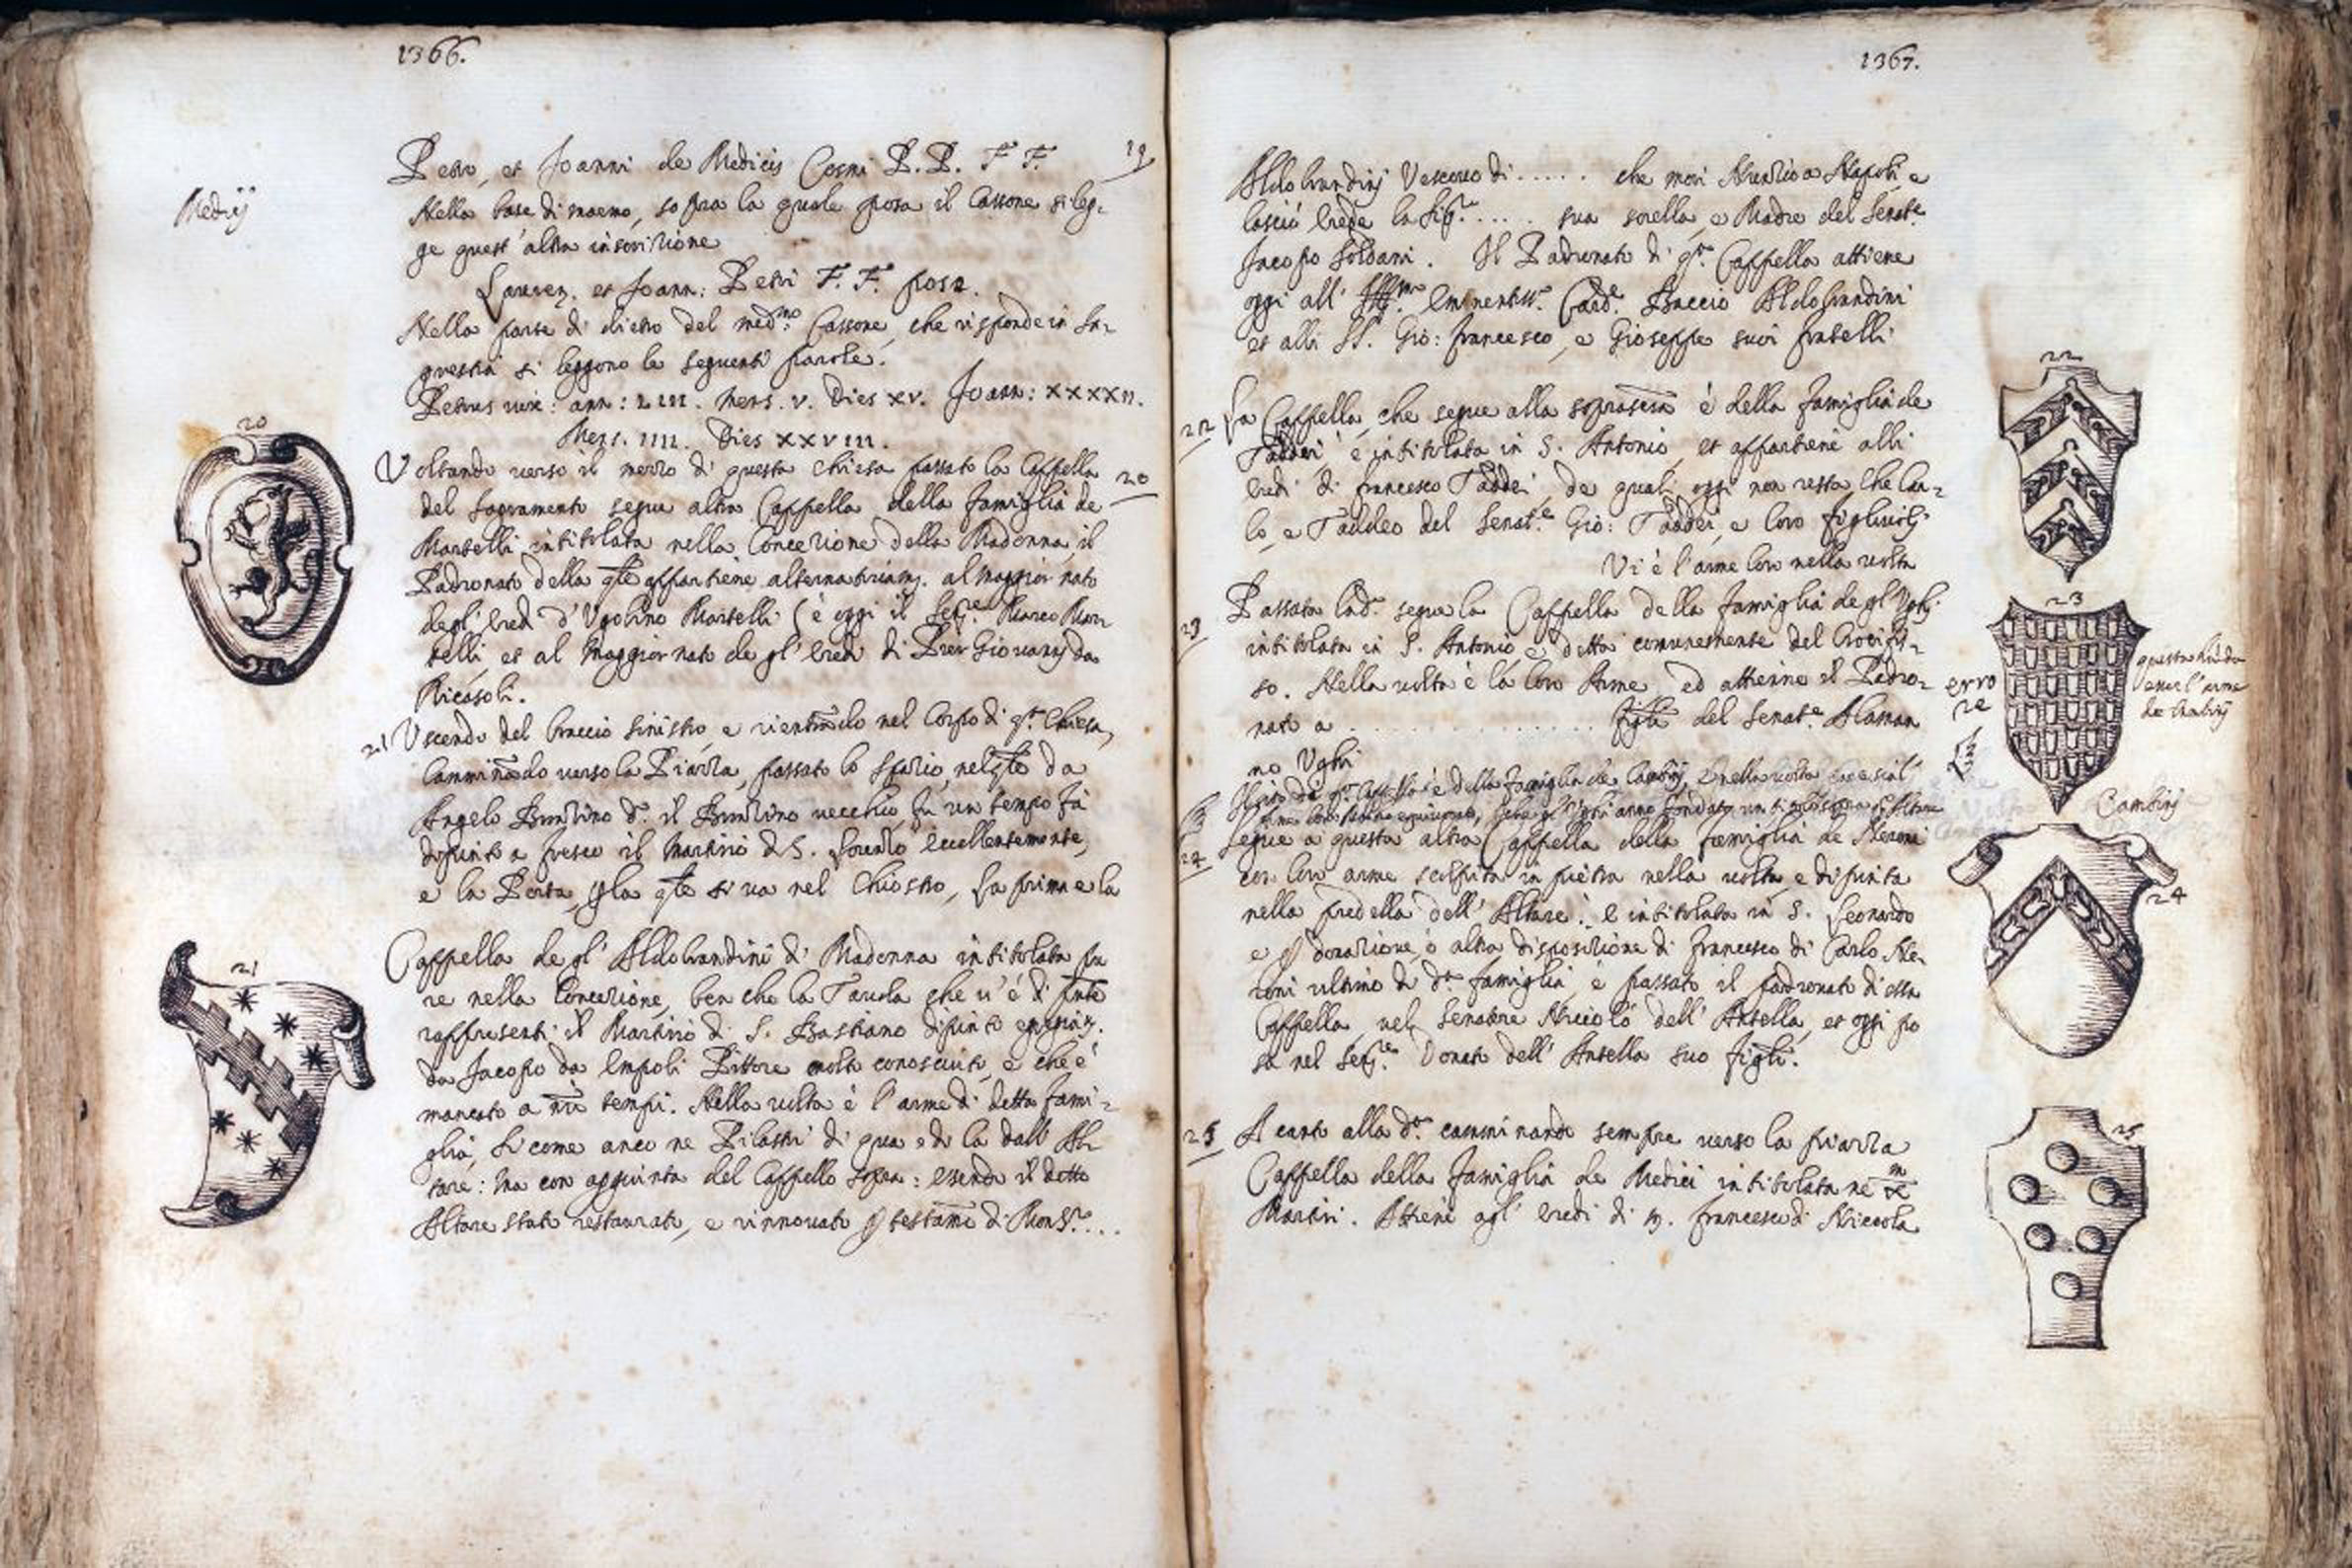 1366.
Medicij
Petro, et Joanni de Medicis Cosmi P. P. F. F.
19
Nella base di marmo, sopra la quale posa il Cassone si leg-
ge quest'altra inscrizione
Lauren. et Joann: Petri F. F. posr.
Nella parte di dietro del medmo. Cassone, che risponde in Sa-
grestia si leggono le seguenti parole.
Petrus vix: ann: LIII. Mens. V. Dies XV. Joann: XXXXII.
Mens. IIII. Dies XXVIII.
20
Voltando verso il mezzo di questa Chiesa passato la Cappella
20
del Sagramento segue altra Cappella della famiglia de
Martelli intitolata nella Concezione della Madonna, il
Padronato della qle appartiene alternativam. al Maggior nato
degl'Eredi d'Ugolino Martelli (è oggi il Sege. Marco Mar
telli, et al Maggior nato de gl'Eredi di Pier Giovannj da
Ricasoli.
21 Uscendo del braccio sinistro, e rientrãdo nel Corpo di qta. Chiesa,
Camminãdo verso la Piazza, passato lo spazio, nel qle da
Angelo Bronzino do. il Bronzino vecchio, fu un tempo fà
dipinto a fresco il Martirio di S. Lorenzo eccellentemente,
e la Porta, p la qle si va nel Chiostro, La prima e la
Cappella de gl'Aldobrandini di Madonna intitolata pu
21
re nella Concezione, ben che la Tavola che v'è di pñte
rappresenti il Martirio di S. Bastiano dipinto
da Jacopo da Empoli Pittore molto conosciuto, e che è
mancato a nri tempi. Nella volta è l'arme di detta fami-
glia, Si come anco ne Pilastri di qua e di la dall'Al
tare: Ma con aggiunta del Cappello sopra: essendo il detto
Altare stato restaurato, e rinnovato p testamẽ di Monsre....
1367.
Aldobrandinj Vescovo di ..... che morì Nunzio a Napoli, e
lasciò Erede la Sigra. .... sua sorella, e Madre del Senate.
Jacopo Soldani. Il Padronato di qta. Cappella attiene
oggi all' Illmo. Eminentiss. Carde. Baccio Aldobrandini
et alli SS. Gio: francesco, e Gioseppe suoi fratelli
22
22 La Cappella, che segue alla soprascrã è della famiglia de
Taddei è intitolata in S. Antonio, et appartiene alli
Eredi di francesco Taddei, de quali oggi non resta che Car-
lo, e Taddeo del Senate. Gio: Taddei, e loro figliuoli
Vi è l'arme loro nella volta
23
23 Passata la da. segue la Cappella della famiglia de gl'Ughj
intitolata in S. Antonio e detta comunemente del Crocifis-
so. Nella volta è la loro Arme, ed attiene il Padro-
nato a ............... figli del Senate. Alaman
no Ughi
erro
re
questa hà da
esser l'arme
de Cambinj
Cambinj
24
24 Segue a questa altra Cappella della famiglia de Neroni
con loro arme scolpita in pietra nella volta, e dipinta
nella predella dell'Altare. E intitolata in S. Leonardo
e p donazione, o altra disposizione di francesco di Carlo Ne-
roni ultimo di da. famiglia è passato il padronato di essa
Cappella nel Senatore Niccolò dell'Antella, et oggi po
sa nel Sege. Donato dell'Antella suo figli.
25
25 A canto alla da. camminando sempre verso la piazza
Cappella della famiglia de Medici intitolata ne
Martiri. Attiene agl'Eredi di M. francesco di Niccola